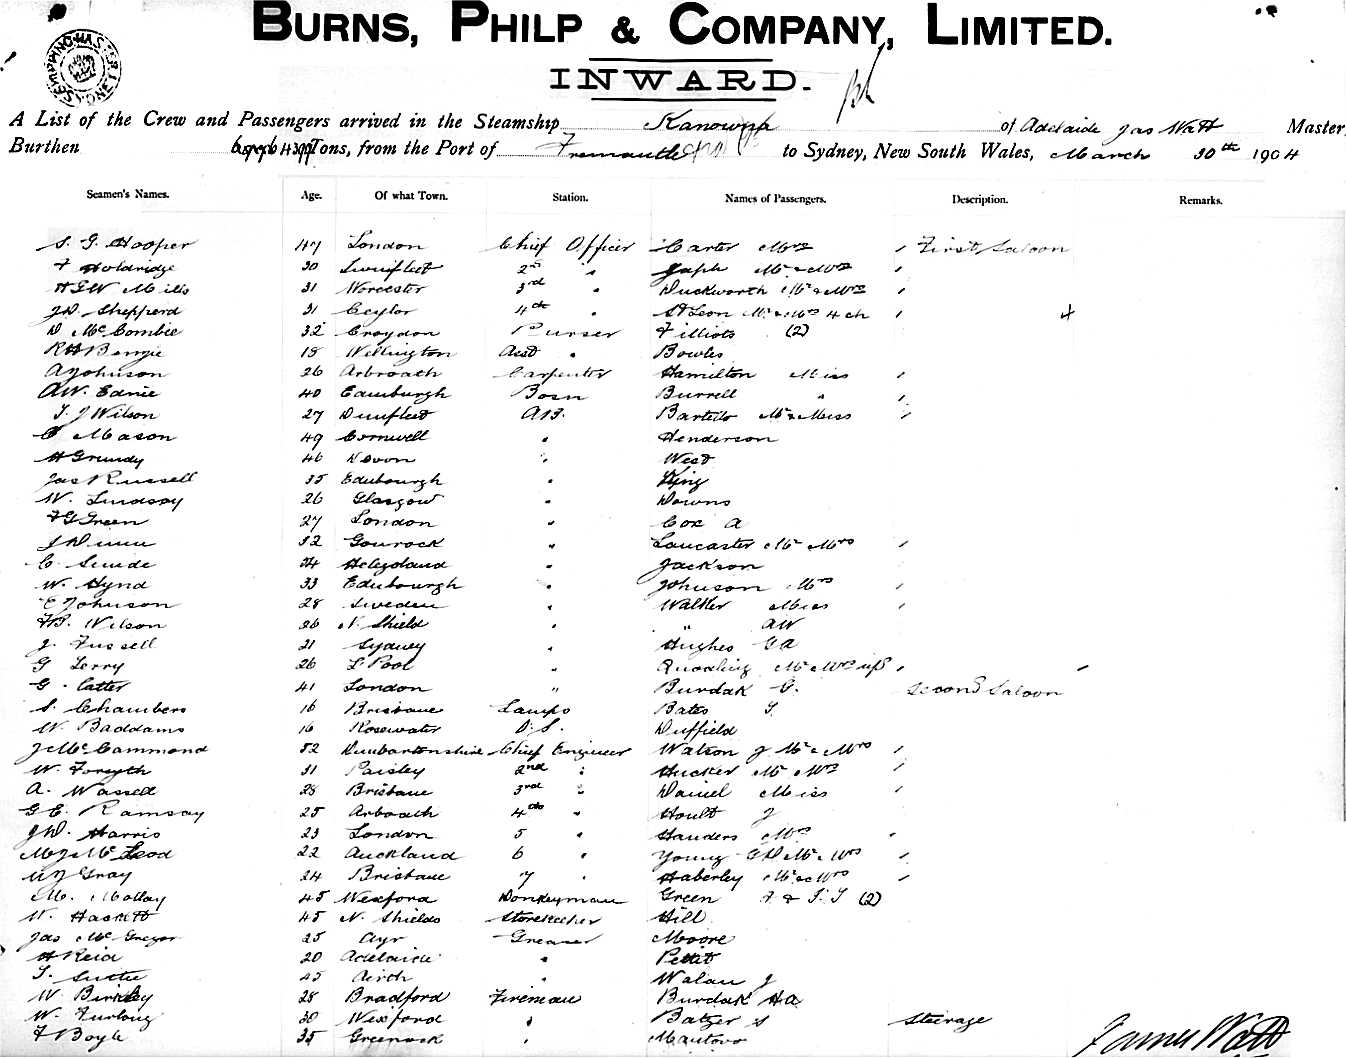 BURNS, PHILP & COMPANY, LIMITED.
INWARD.
A List of the Crew and Passengers arrived in the Steamship Kanowna of Adelaide Jas Watt Master,
Burthen Tons, from the Port of Fremantle to Sydney, New South Wales, March 30th 1904
Seamen's Names. Age. Of what Town. Station. Names of Passengers. Description. Remarks.
S. G. Hooper 47 London Chief Officer Carter Mrs First Saloon
F Holdridge 30 Swinfleet 2nd " Mr & Mrs
Mills 31 Worcester 3rd " Duckworth Mr & Mrs
J.D. Shepperd 31 Ceylon 4th " St Leon Mr & Mrs 4 ch
D McCombie 32 Croydon Purser Filliots (2)
19 Wellington Asst " Bowles
A Johnson 26 Arbroath Carpenter Hamilton Miss
AW. Ednie 40 Edinburgh Bosn Burrell "
T. J Wilson 27 AB. Mr & Miss
C Mason 49 Cornwell " Henderson
H Grundy 46 Devon " West
Jas Russell 35 Edubourgh " King
W. Lindsay 26 Glasgow " Downs
F G Green 27 London " Cox A
Gourock " Lancaster Mr Mrs
C. Heligoland " Jackson
W. Hynd 33 Edubourgh " Johnson Mrs
E Johnson 28 Sweden " Walker Miss
Wilson 26 N. Shield " " AW
J. Fussell 21 Sydney " Hughes
G Terry 26 L'Pool " Mr Mrs
G. Catter 41 London " Burdak G. Second Saloon
S. Chambers 16 Brisbane Lamps Bates T.
W. Baddams 16 Rosewater O.S. Duffield
J McCammond 52 Dunbartonshire Chief Engineer Watson J Mr & Mrs
W. Forsyth 31 Paisley 2nd " Hucker Mr Mrs
A. Wassell 28 Brisbane 3rd " Daniel Miss
G E. Ramsay 25 Arbroath 4th " Hoult J
J D. Harris 23 London 5 " Handers Mrs
McLeod 22 Auckland 6 " Young Mr & Mrs
Gray 24 Brisbane 7 " Haberley Mr & Mrs
M. Molloy 45 Wexford Donkeyman Green (2)
W. Hackett 45 N. Shields Storekeeper Hill
Jas McGregor 25 Ayr Greaser Moore
H Reid 20 Adelaide " Pettit
T. Suttie 45 Airth " J
W. Binkley 28 Bradford Fireman Burdak H.A
W. Furlong 30 Wexford " Batger S Steerage
F Boyle 35 Greenock " Mantovo
James Watt